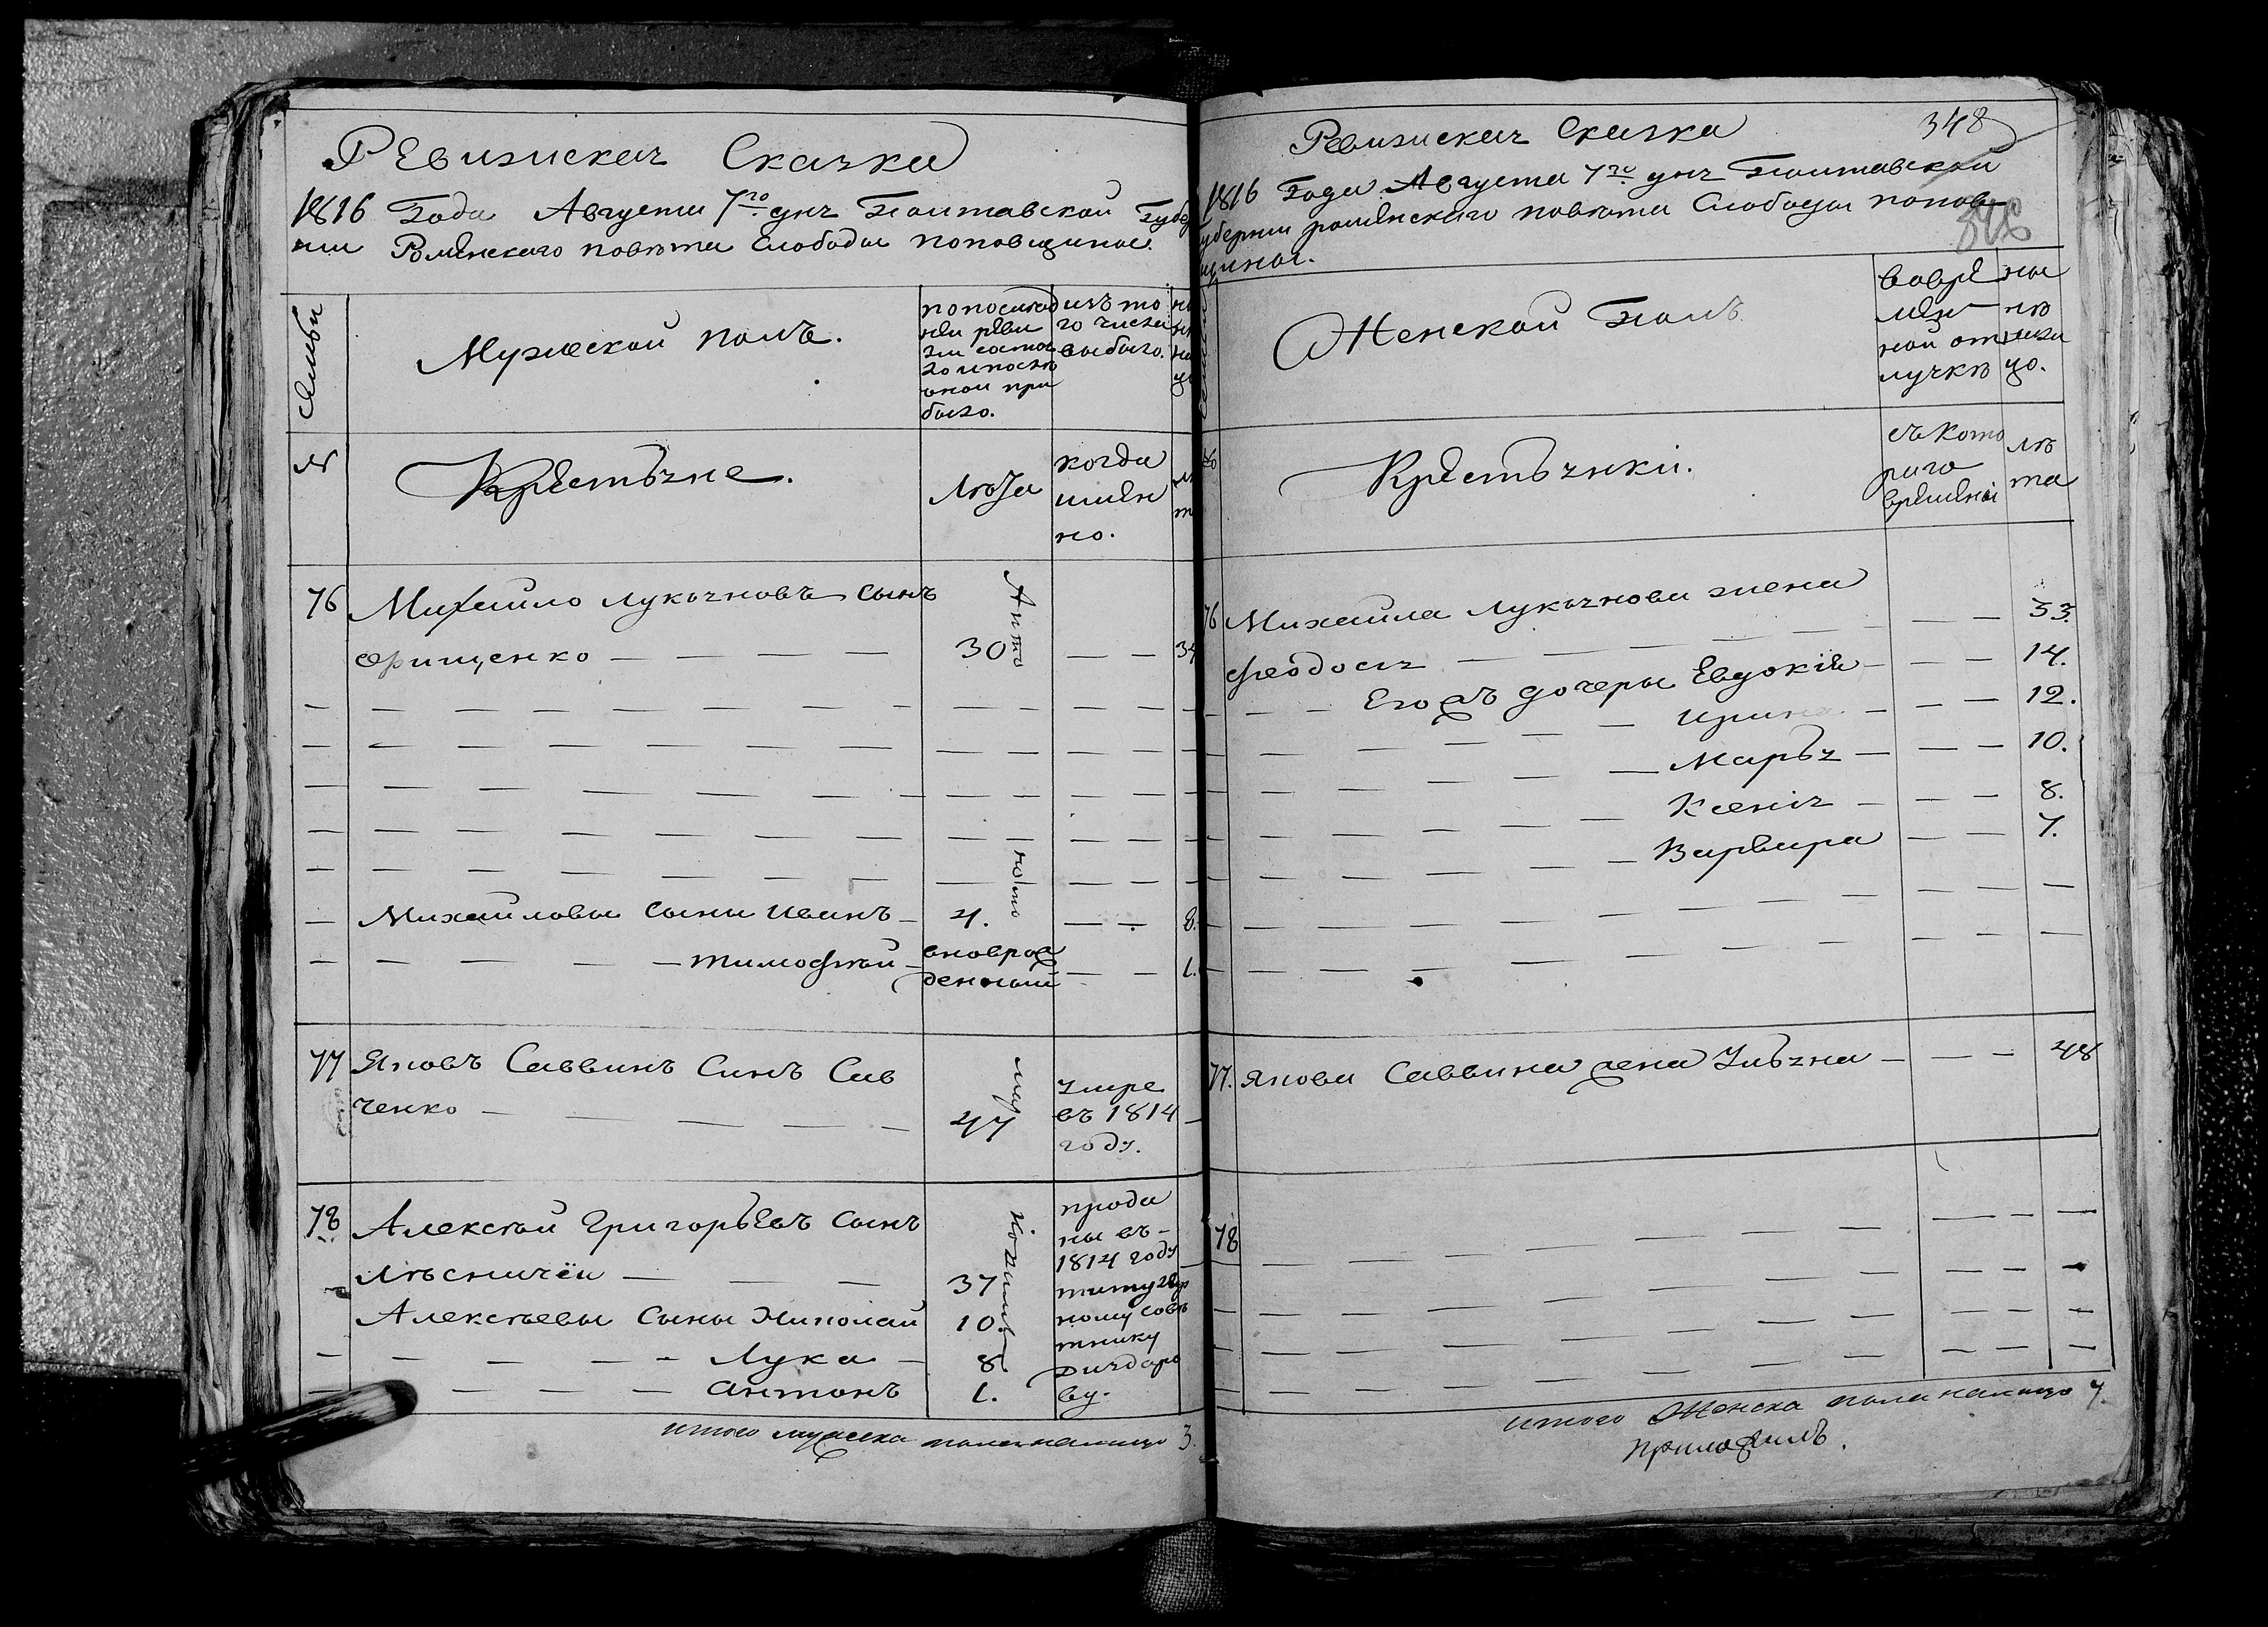 Ревизская Сказка
1816 Года Августа 7го дня Полтавской Губер
нии Роменского повета Слободы поповщины.
Семьи
Мужеской полъ.
по последней ревизіи состояло и после оной прибыло.
изъ того числа выбыло.
№
Крестьяне.
Лета
когда именно.
76 Михаило Лукьяновъ сынъ
Орищенко 30 34
Михаиловы сыны Иванъ 4. 8.
тимофей вноврож
денный 1.
77 Яковъ Саввинъ Синъ Сав
ченко 47 умре въ 1814 году.
78 Алексей Григорьевъ сынъ
Лесничей 37
Алексеевы Сыны Николай 10.
Лука 8
антонъ 1.
проданы въ 1814 году титулярному советнику
итого мужеска пола налицо 3.
348
Ревизская Сказка
1816 Года Августа 7го дня Полтавской
губернии роменского повета Слободы попов
щины.
Женской Полъ.
во временной отлучке
на лицо.
№
Крестьянки.
съ которого времени
лета
76 Михаила Лукьянова жена
феодосья 53.
Его жъ дочеры Евдокія 14.
Ирина 12.
Марья 10.
Ксенія 8.
Варвара 7.
77. Якова Саввина жена Ульяна 48
78
итого Женска пола налицо 7.
приложилъ.